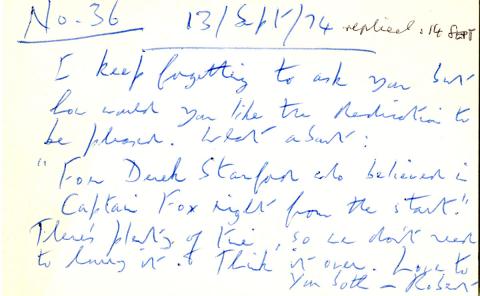 No. 36 13/Sept/74 replied: 14 SEPT
I keep forgetting to ask you but
how would you like the dedication to
be phrased. What about:
"For Derek Stanford who believed in
Captain Fox right from the start."
There's plenty of time, so we don't need
to hurry it. Think it over. Love to
You both - Robert